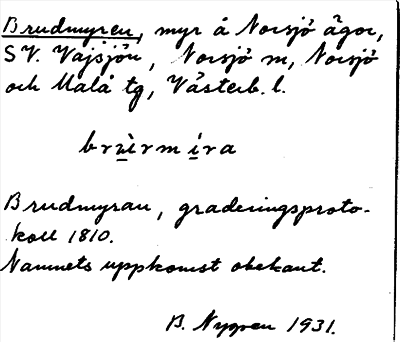 Brudmyren, myr å Norsjö ägor,
SV. Vajsjön, Norsjö sn, Norsjö
och Malå tg, Västerb. l.
Brudmyran, graderingsproto-
koll 1810.
Namnets uppkomst obekant.
B. Nygren 1931.